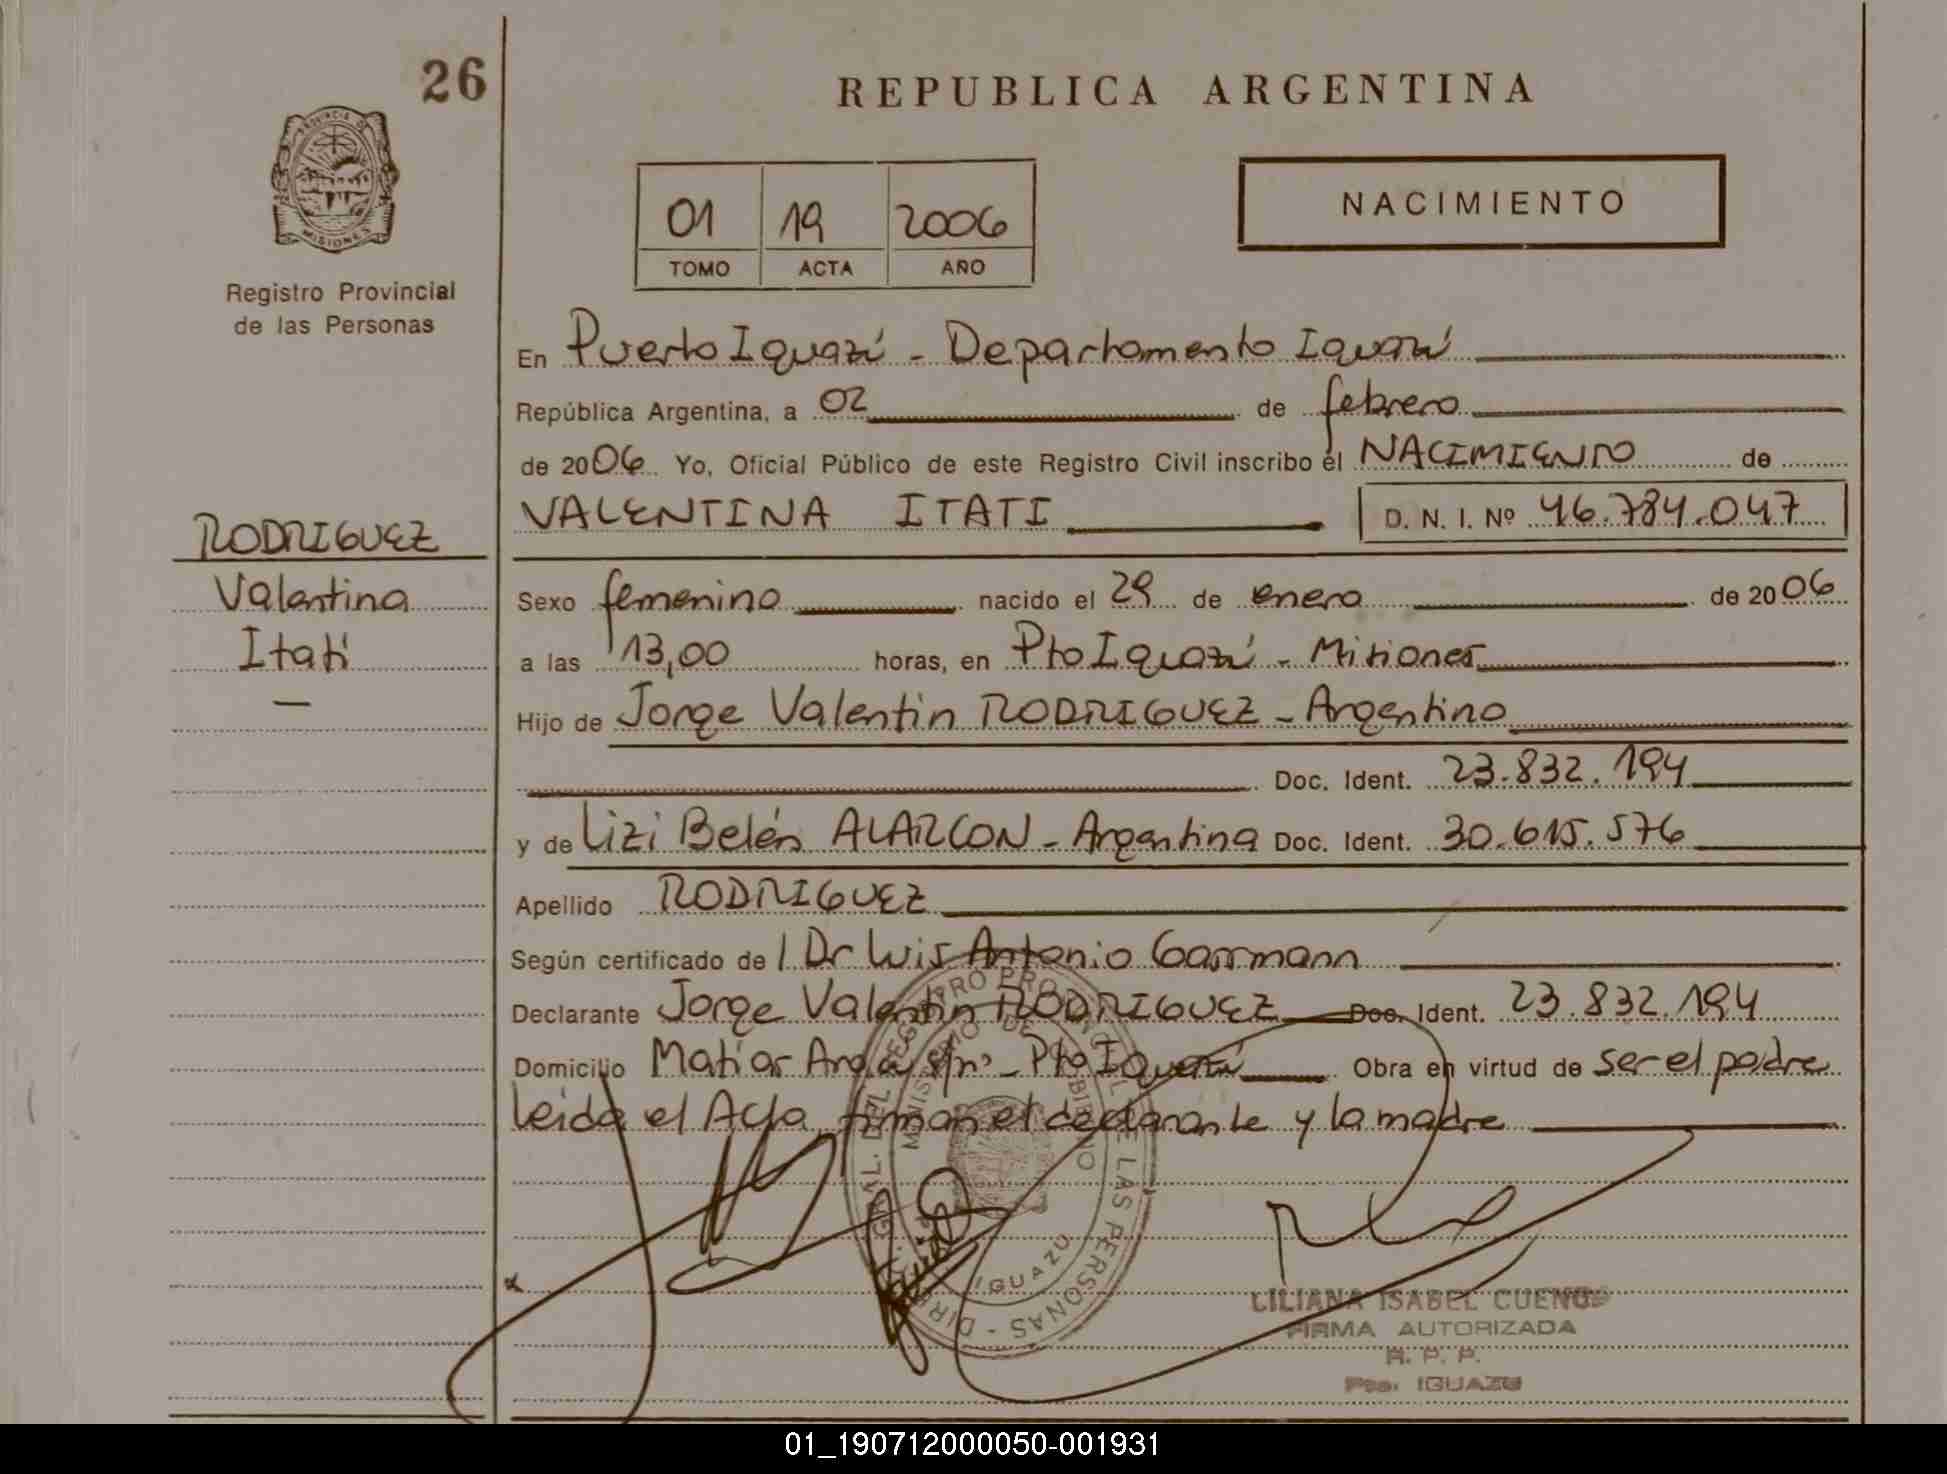 26
REPUBLICA ARGENTINA
PROVINCIA DE
MISIONES
Registro Provincial
de las Personas
01 19 2006
TOMO ACTA AÑO
NACIMIENTO
En Puerto Iguazú - Departamento Iguazú
República Argentina, a 02 de febrero
de 2006 Yo, Oficial Público de este Registro Civil inscribo el NACIMIENTO de
VALENTINA ITATI D. N. I. Nº 46.784.047
RODRIGUEZ
Valentina
Itatí
—
Sexo femenino nacido el 29 de enero de 2006
a las 13,00 horas, en Pto Iguazú - Misiones
Hijo de Jorge Valentin RODRIGUEZ - Argentino
Doc. Ident. 23.832.194
y de Lizi Belén ALARCON - Argentina Doc. Ident. 30.615.576
Apellido RODRIGUEZ
Según certificado de l Dr Luis Antonio
Declarante Jorge Valentin RODRIGUEZ Doc. Ident. 23.832.194
Domicilio Matías s/nº - Pto Iguazú Obra en virtud de ser el padre
leida el Acta, firman el declarante y la madre
DIREC. GRAL. DEL REGISTRO PROVINCIAL DE LAS PERSONAS -
MINISTERIO DE GOBIERNO
IGUAZU
LILIANA ISABEL
FIRMA AUTORIZADA
R. P. P.
Pto. IGUAZU
01_190712000050-001931